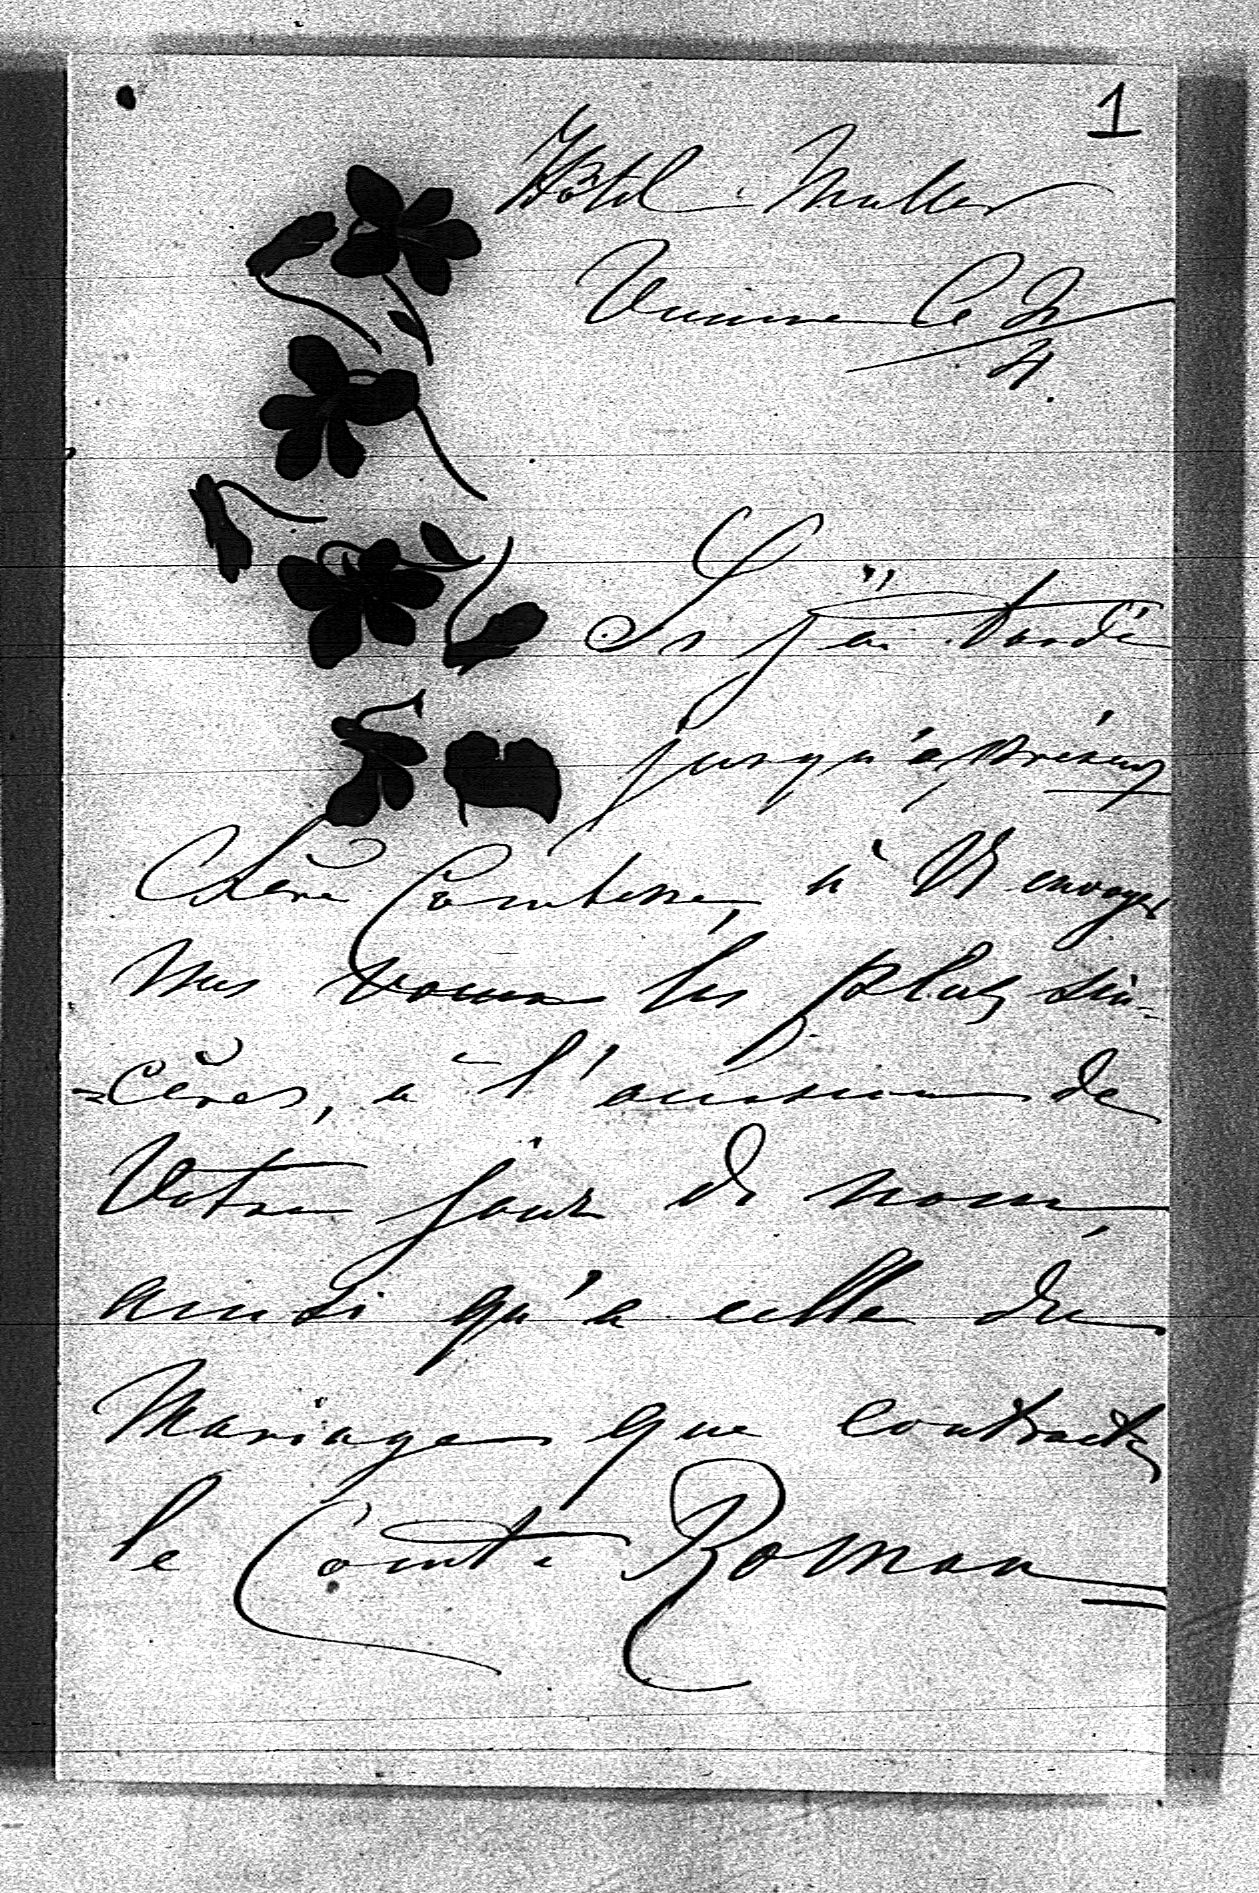 1
Hôtel Muller
Vienne le 2/4.
Si j'ai tardé
jusqu'à présent
Chère Comtesse, à V envoyer
mes voeux les plus sin-
=cères, à l'occasion de
Votre jour de nom,
ainsi qu'à celle du
Mariage que contracte
le Comte Roman